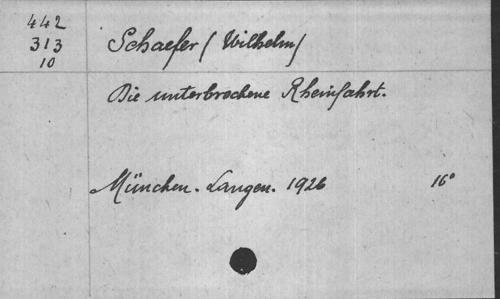 442
313
10
Schaefer (Wilhelm)
Die unterbrochene Rheinfahrt.
München. Langen. 1926 16°